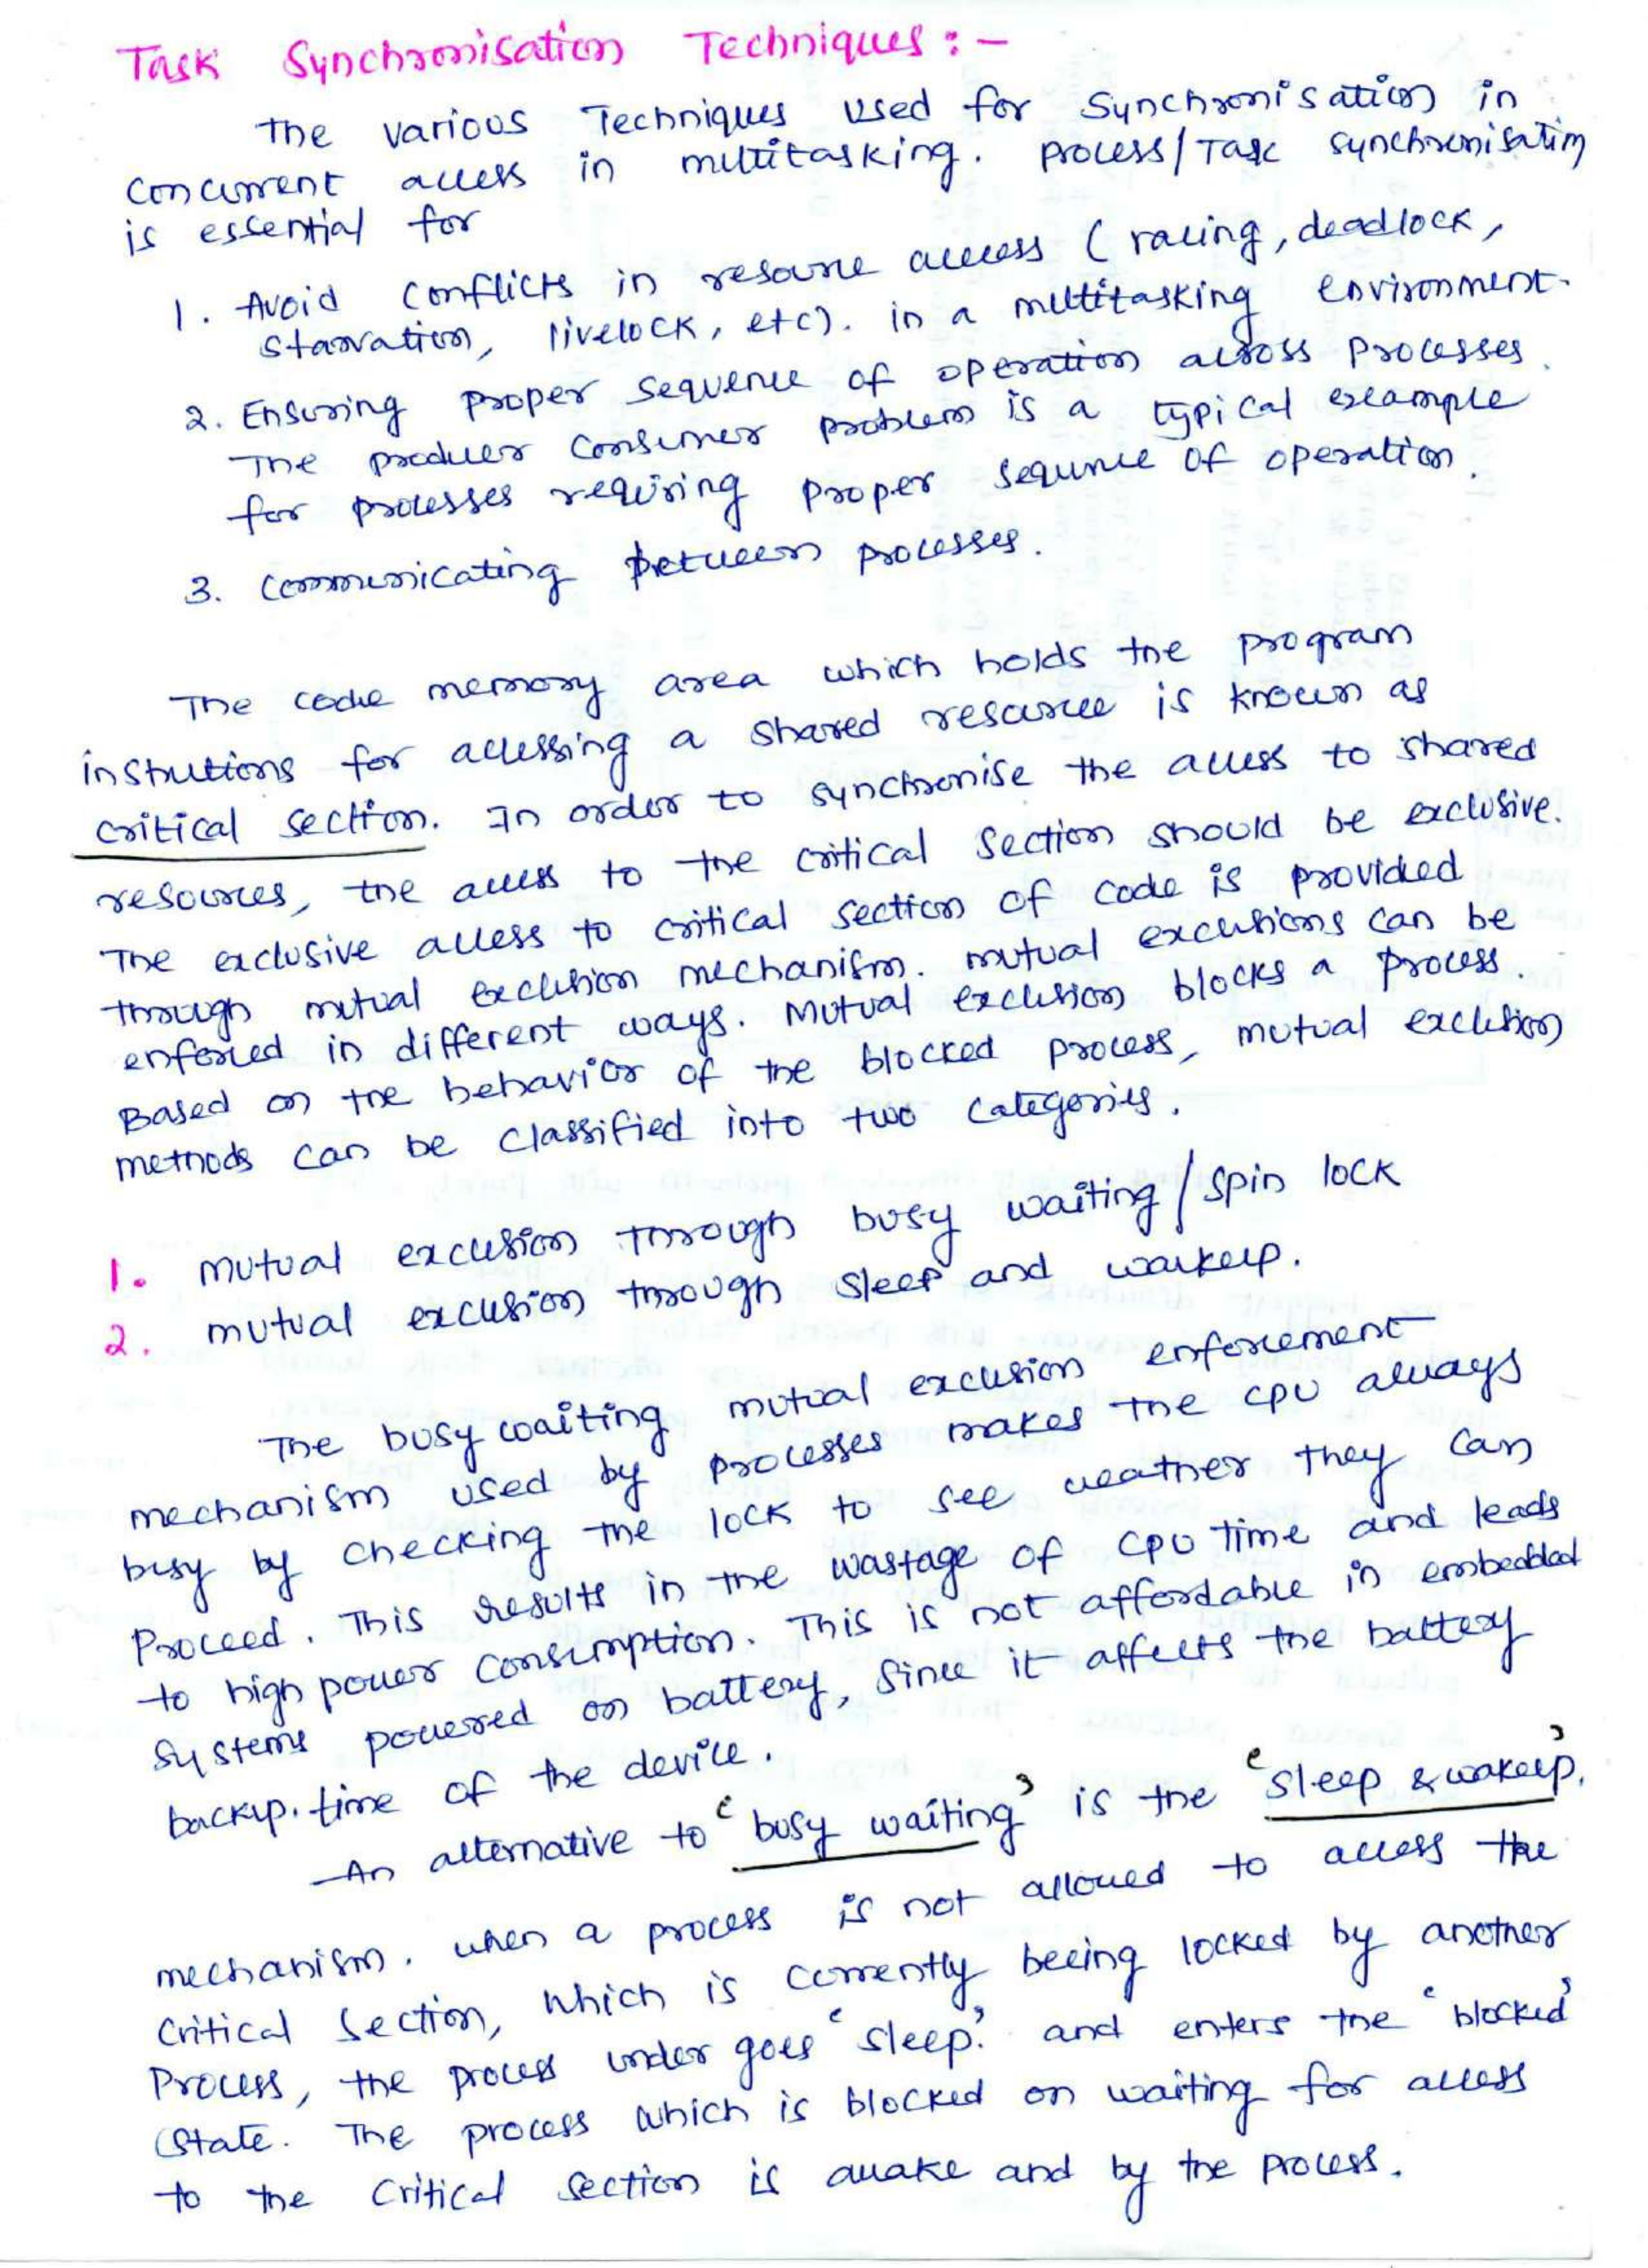 Task Synchronisation Techniques : -
The various Techniques used for synchronisation in
concurrent access in multitasking. process/Task synchronisation
is essential for
1. Avoid conflicts in resource access ( racing, deadlock,
starvation, livelock, etc). in a multitasking environment.
2. Ensuring proper sequence of operation across processes.
The producer consumer problem is a typical example
for processes requiring proper sequnce of operation.
3. communicating between processes.
The code memory area which holds the program
instrutions for accessing a shared resource is known as
critical section. In order to synchronise the access to shared
resources, the access to the critical section should be exclusive.
The exclusive access to critical section of code is provided
through mutual exclusion mechanism. mutual exclusions can be
enforced in different ways. Mutual exclusion blocks a process.
Based on the behavior of the blocked process, mutual exclusion
methods can be classified into two categories.
1. mutual exclusion through busy waiting / spin lock
2. mutual exclusion through sleep and waikeup.
The busy waiting mutual exclusion enforcement
mechanism used by processes makes the cpu always
busy by checking the lock to see weather they can
proceed. This results in the wastage of cpu time and leads
to high power consumption. This is not affordable in embedded
systems powered on battery, since it affects the battery
backup. time of the device.
An alternative to 'busy waiting' is the 'sleep & wakeup'.
mechanism. when a process is not allowed to access the
critical section, which is currently beeing locked by another
Process, the process under goes 'sleep'. and enters the 'blocked'
state. The process which is blocked on waiting for access
to the critical section is awake and by the process.